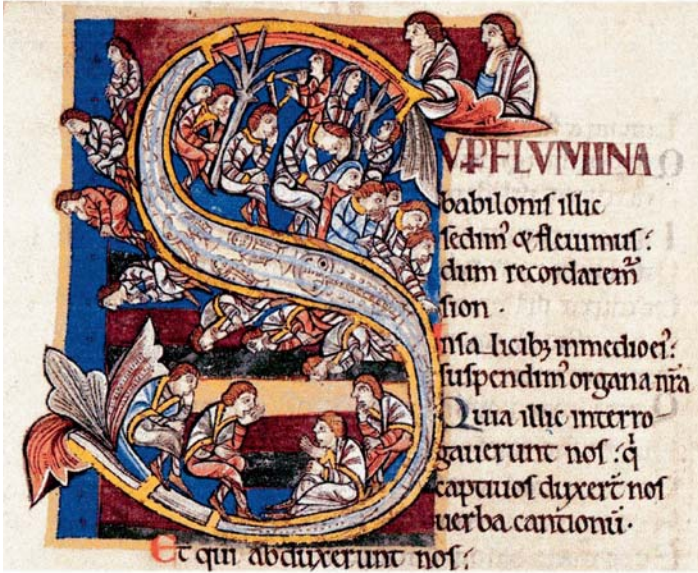 SUP FLUMINA
babilonis illic
sedim⁹ & fleuimus:
dum recordarem̄
sion.
Insalicib; inmedio ei⁹:
suspendim⁹ organa nr̄a
Quia illic interro
gauerunt nos: q̇
captiuos duxer̄t nos
uerba cantionū.
Et qui abduxerunt nos: